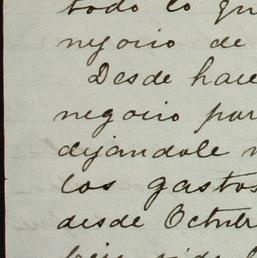 todo lo qu
nejocio de
Desde hace
negocio par
dejandole n
los gastos
desde Octubr